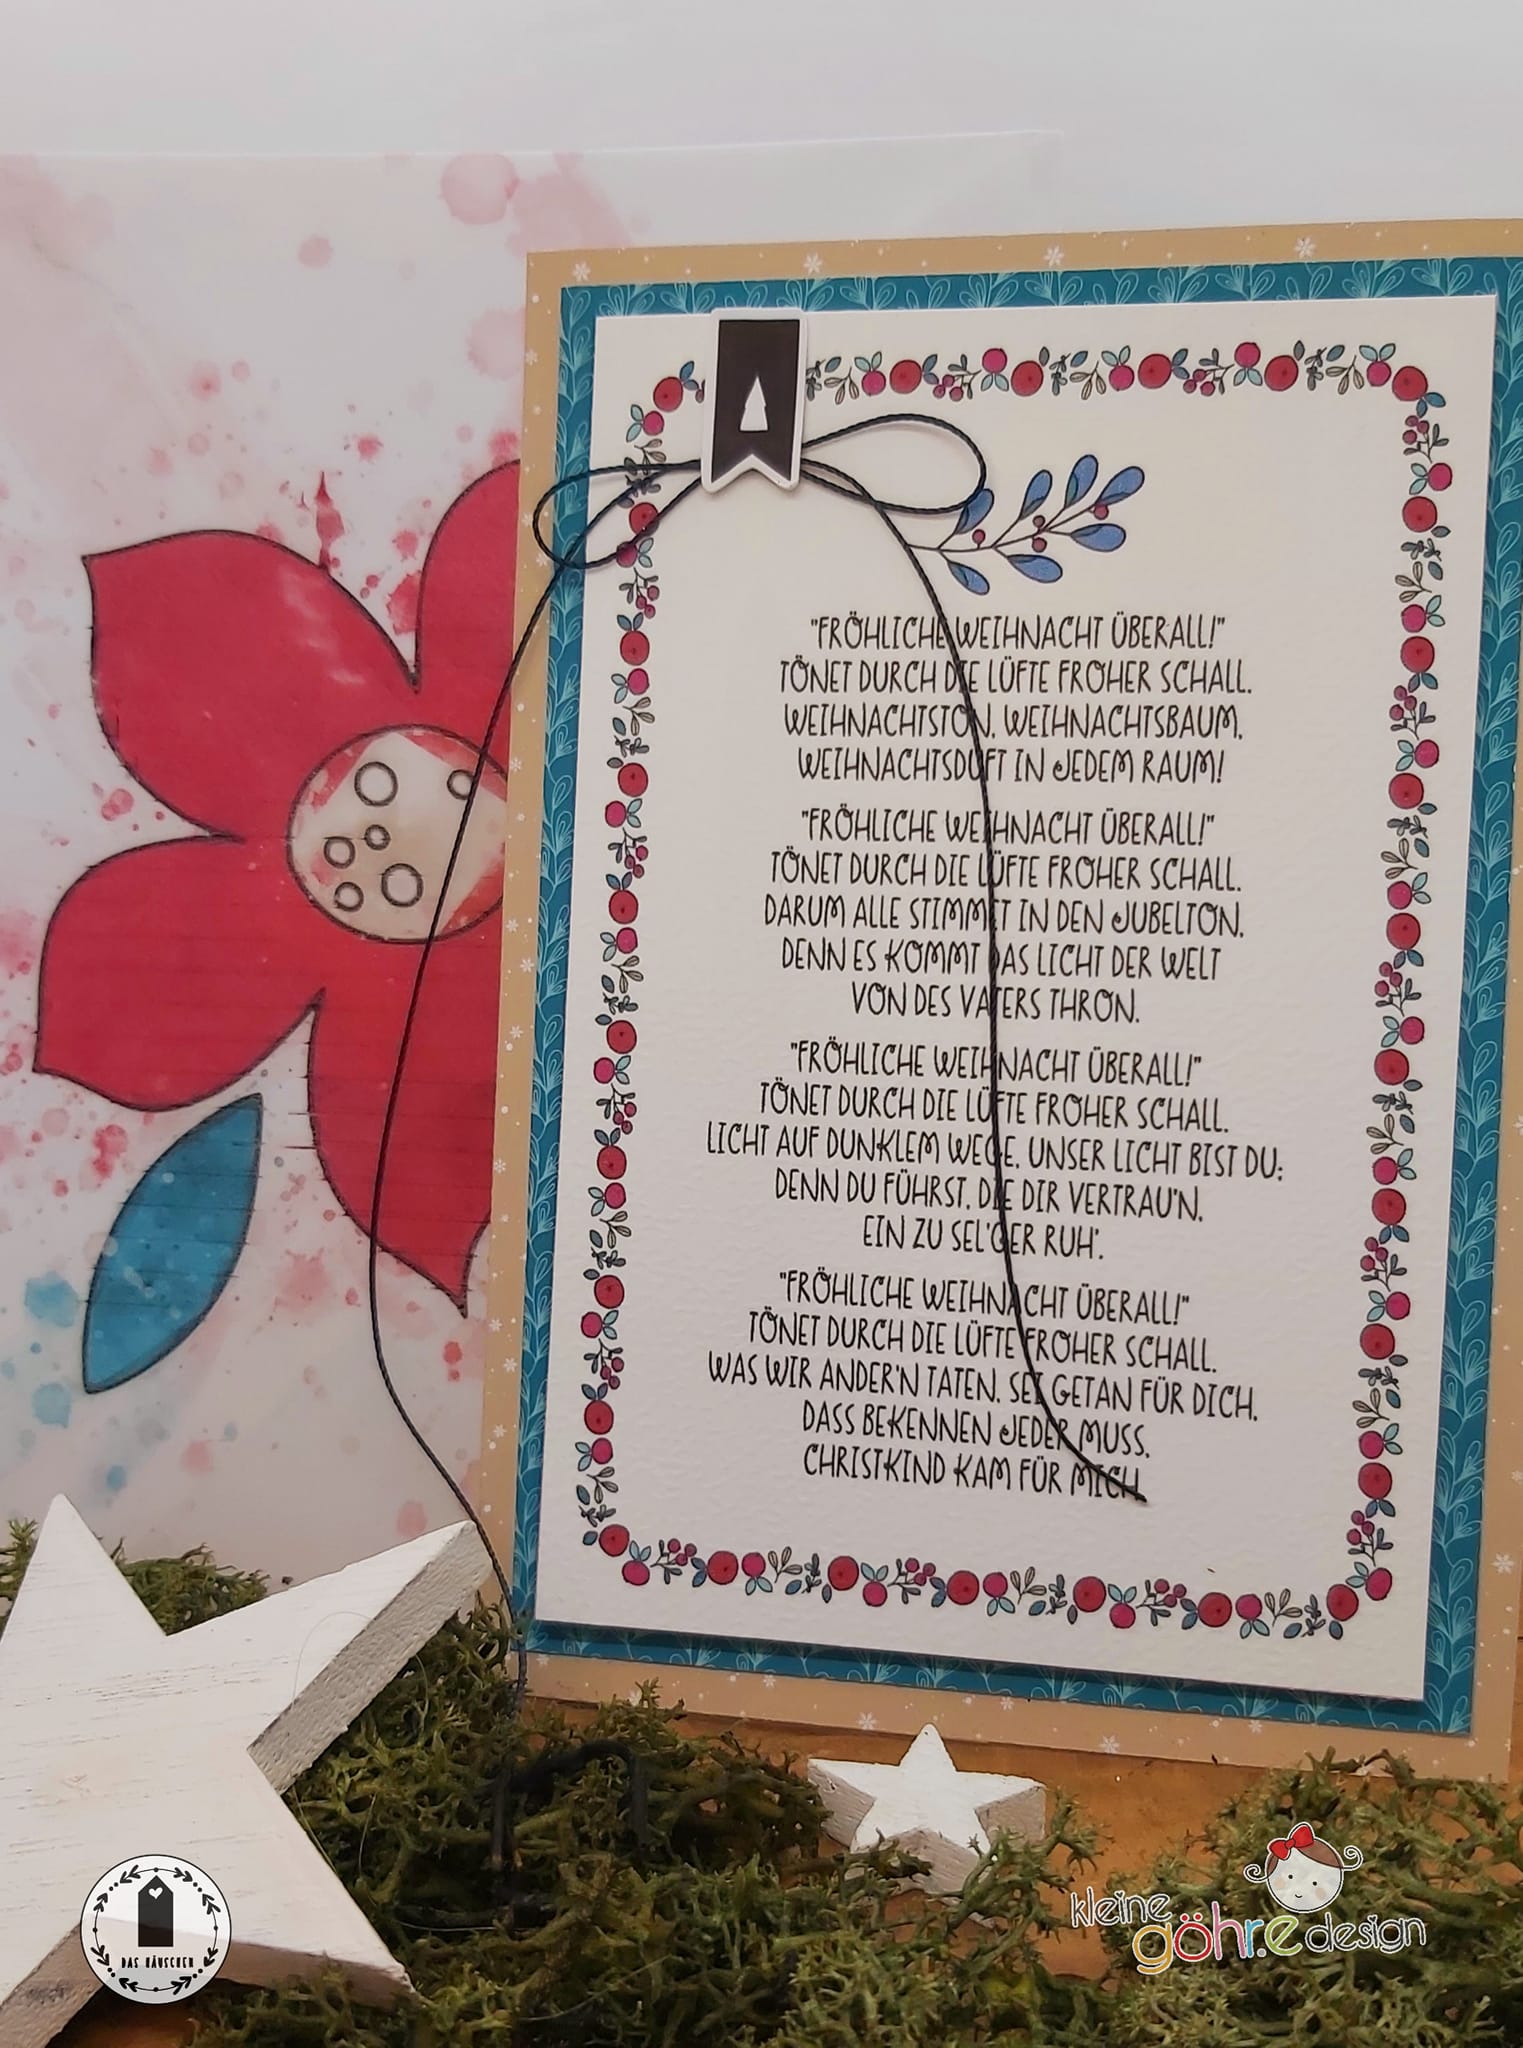 "FRÖHLICHE WEIHNACHT ÜBERALL!"
TÖNET DURCH DIE LÜFTE FROHER SCHALL.
WEIHNACHTSTON, WEIHNACHTSBAUM,
WEIHNACHTSDUFT IN JEDEM RAUM!
"FRÖHLICHE WEIHNACHT ÜBERALL!"
TÖNET DURCH DIE LÜFTE FROHER SCHALL.
DARUM ALLE STIMMET IN DEN JUBELTON,
DENN ES KOMMT DAS LICHT DER WELT
VON DES VATERS THRON.
"FRÖHLICHE WEIHNACHT ÜBERALL!"
TÖNET DURCH DIE LÜFTE FROHER SCHALL.
LICHT AUF DUNKLEM WEGE, UNSER LICHT BIST DU;
DENN DU FÜHRST, DIE DIR VERTRAU'N,
EIN ZU SEL'GER RUH'.
"FRÖHLICHE WEIHNACHT ÜBERALL!"
TÖNET DURCH DIE LÜFTE FROHER SCHALL.
WAS WIR ANDER'N TATEN, SEI GETAN FÜR DICH,
DASS BEKENNEN JEDER MUSS,
CHRISTKIND KAM FÜR MICH.
DAS HÄUSCHEN
kleine
göhr.e design